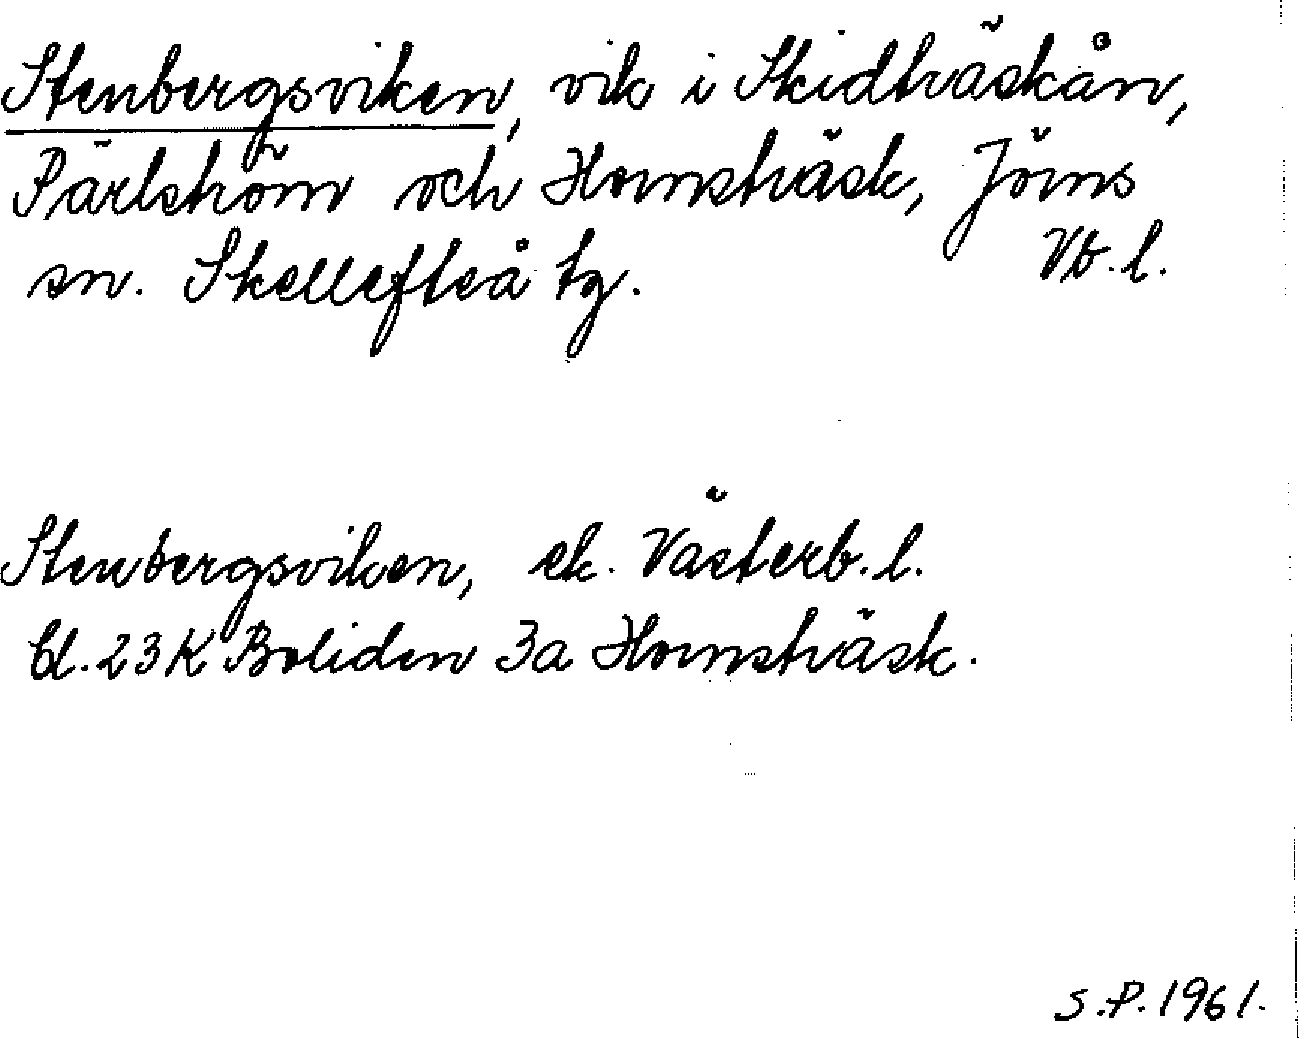 Stenbergsviken, vik i Skidträskån,
Pärlström och Hornsträsk, Jörns
sn. Skellefteå tg. Vb. l.
Stenbergsviken, ek. Västerb. l.
bl. 23 K Boliden 3a Hornsträsk.
S.P. 1961.